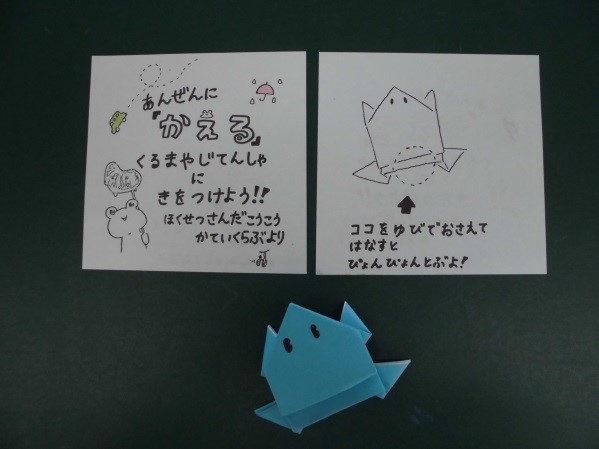 あんぜんに
「かえる」
くるまやじてんしゃ
に
きをつけよう!!
ほくせっさんだこうこう
かていくらぶより
ココをゆびでおさえて
はなすと
ぴょんぴょんとぶよ!